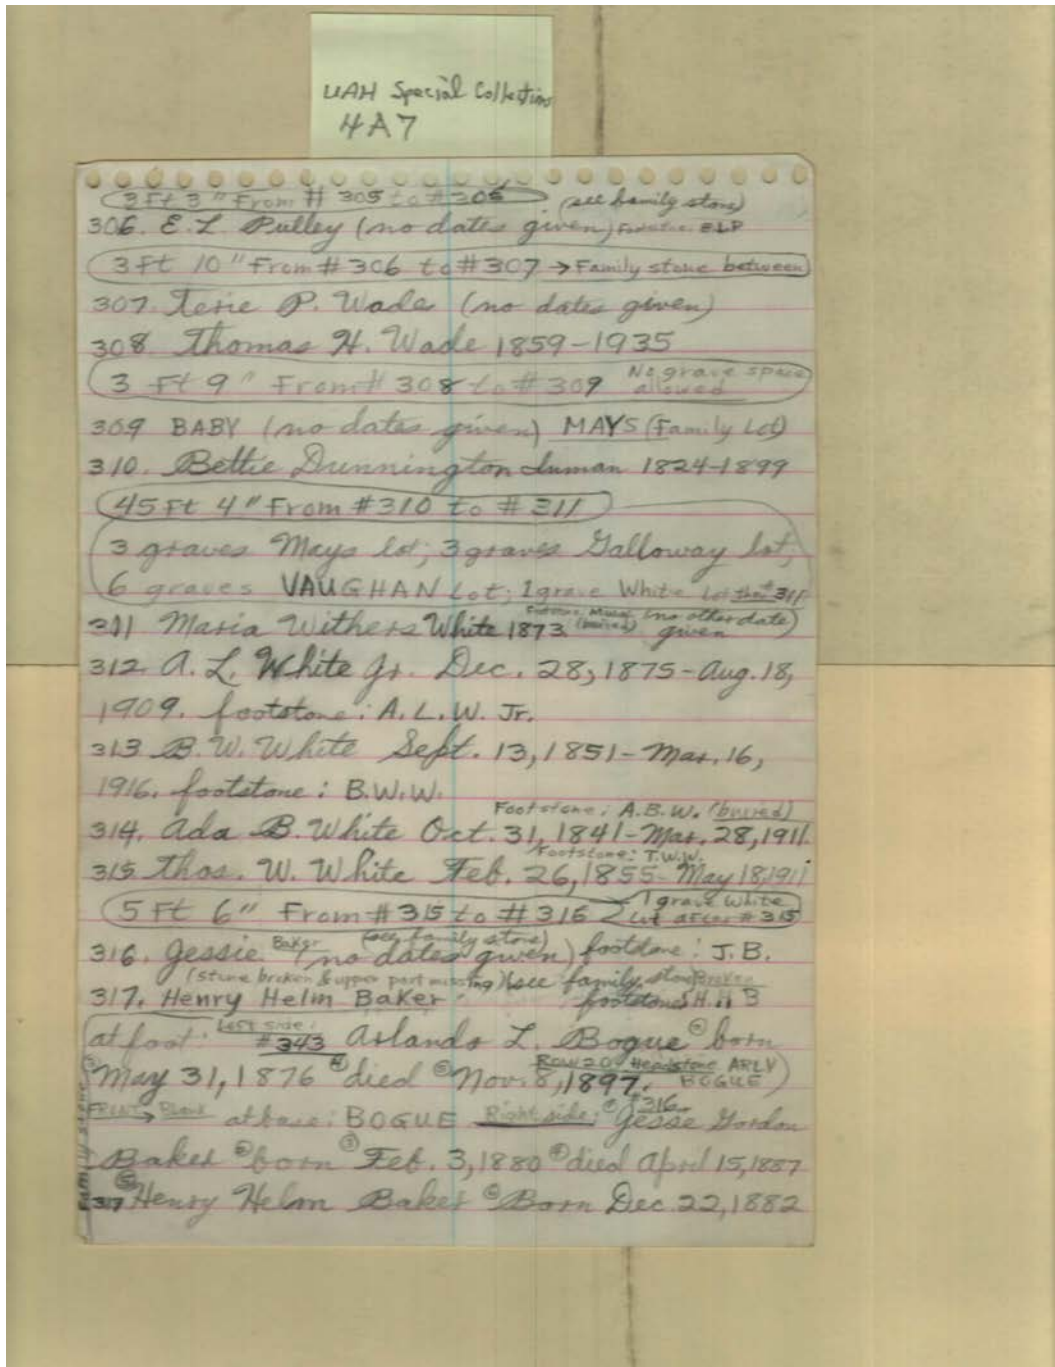 UAH Special Collections
4A7
3 Ft 3" From # 305 to # 306 (see family stone)
306. E. L. Pulley (no dates given) Footstone ELP
3 Ft 10" From # 306 to # 307 → Family stone between
307. P. Wade (no dates given)
308. Thomas H. Wade 1859-1935
3 Ft 9" From # 308 to # 309 No grave space allowed
309 BABY (no dates given) MAYS (Family Lot)
310. Bettie Dunnington Inman 1824-1899
45 Ft 4" From #310 to # 311
3 graves Mays lot; 3 graves Galloway lot;
6 graves VAUGHAN Lot; 1 grave White Lot then # 311
311 Maria Withers White 1873 (buried) (no other date given)
312. A. L. White Jr. Dec. 28, 1875 - Aug. 18,
1909. footstone: A. L. W. Jr.
313 B. W. White Sept. 13, 1851 - Mar. 16,
1916. footstone: B.W.W.
Footstone: A.B.W. (buried)
314. Ada B. White Oct. 31, 1841 - Mar. 28, 1911.
Footstone: T.W.W.
315 Thos. W. White Feb. 26, 1855 - May 18, 1911
5 Ft 6" From # 315 to # 316 1 grave White Lot after # 315
316. Jessie Baker (no dates given) (see family stone) footstone: J. B.
(stone broken & upper part missing) (see family stone) Broken
317. Henry Helm Baker footstone H. H B
at foot: Left side: #343 Arlando L. Bogue born
May 31, 1876 died Nov. 8, 1897. Row 20 Headstone ARLV BOGUE)
FRONT → Blank at base: BOGUE Right side: #316 Jesse Gordon
Baker born Feb. 3, 1880 died April 15, 1887
317 Henry Helm Baker Born Dec. 22, 1882